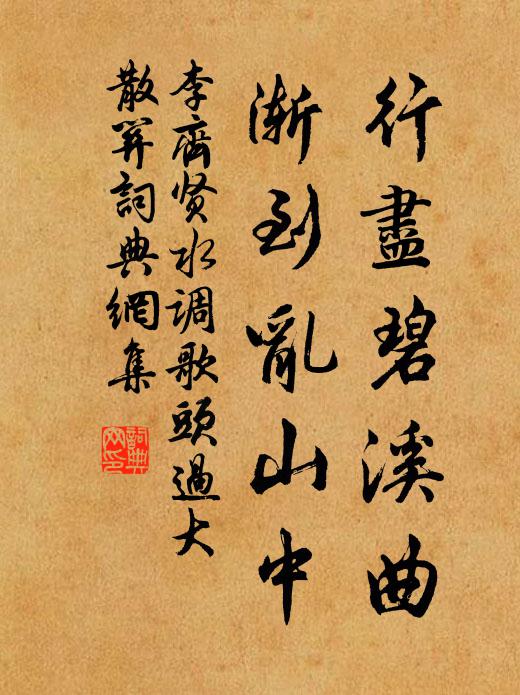 行盡碧溪曲
漸到亂山中
李齊贤水调歌頭過大
散關詞典網集
詞典网印